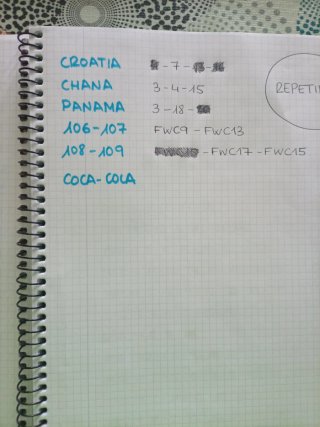 CROATIA - 7 -
CHANA 3-4-15
PANAMA 3-18-
106-107 FWC9 - FWC13
108-109 - FWC17 - FWC15
COCA-COLA